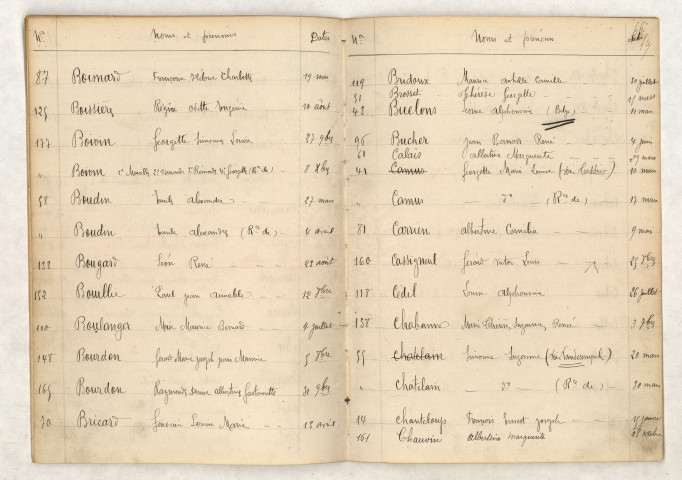 Nos Noms et prénoms Dates
87 Boinard Françoise Hélène Charlotte 19 mai
125 Boissière Régine Odette Eugénie 10 août
177 Boivin Georgette Simonne Louise 27 9bre
" Boivin (Rce de) 8 Xbre
58 Boudin Emile Alexandre 27 mars
" Boudin Emile Alexandre (Rce de) 4 avril
133 Bougard Léon René 22 août
152 Bouillie Paul Jean Aimable 12 7bre
110 Boulanger Marie Maurice Bernard 4 juillet
148 Bourdon Marie Joseph Jean Maurice 5 7bre
165 Bourdon Raymonde Jeanne Albertine 31 9bre
70 Bricard Louise Marie 13 avril
Nos Noms et prénoms
119 Bridoux Maurice Achille Camille 20 juillet
51 Brosset Thérèse Georgette 15 mars
43 Buelons Alphonsine 11 mars
96 Bucher Jean René 4 juin
61 Calais Albertine Marguerite 29 mars
41 Camus Georgette Marie Louise 10 mars
" Camus do (Rce de) 13 mars
81 Carrien Albertine Cornélia 9 mai
160 Cassigneul Gérard Victor Louis 25 7bre
118 Cédil Louise Alphonsine 26 juillet
138 Chabanne Marie Suzanne Renée 3 7bre
55 Chatelain Simonne Suzanne 20 mars
" Chatelain do (Rce de) 30 mars
14 Chanteloup François Ernest Joseph 15 janvier
161 Chauvin Albertine Marguerite